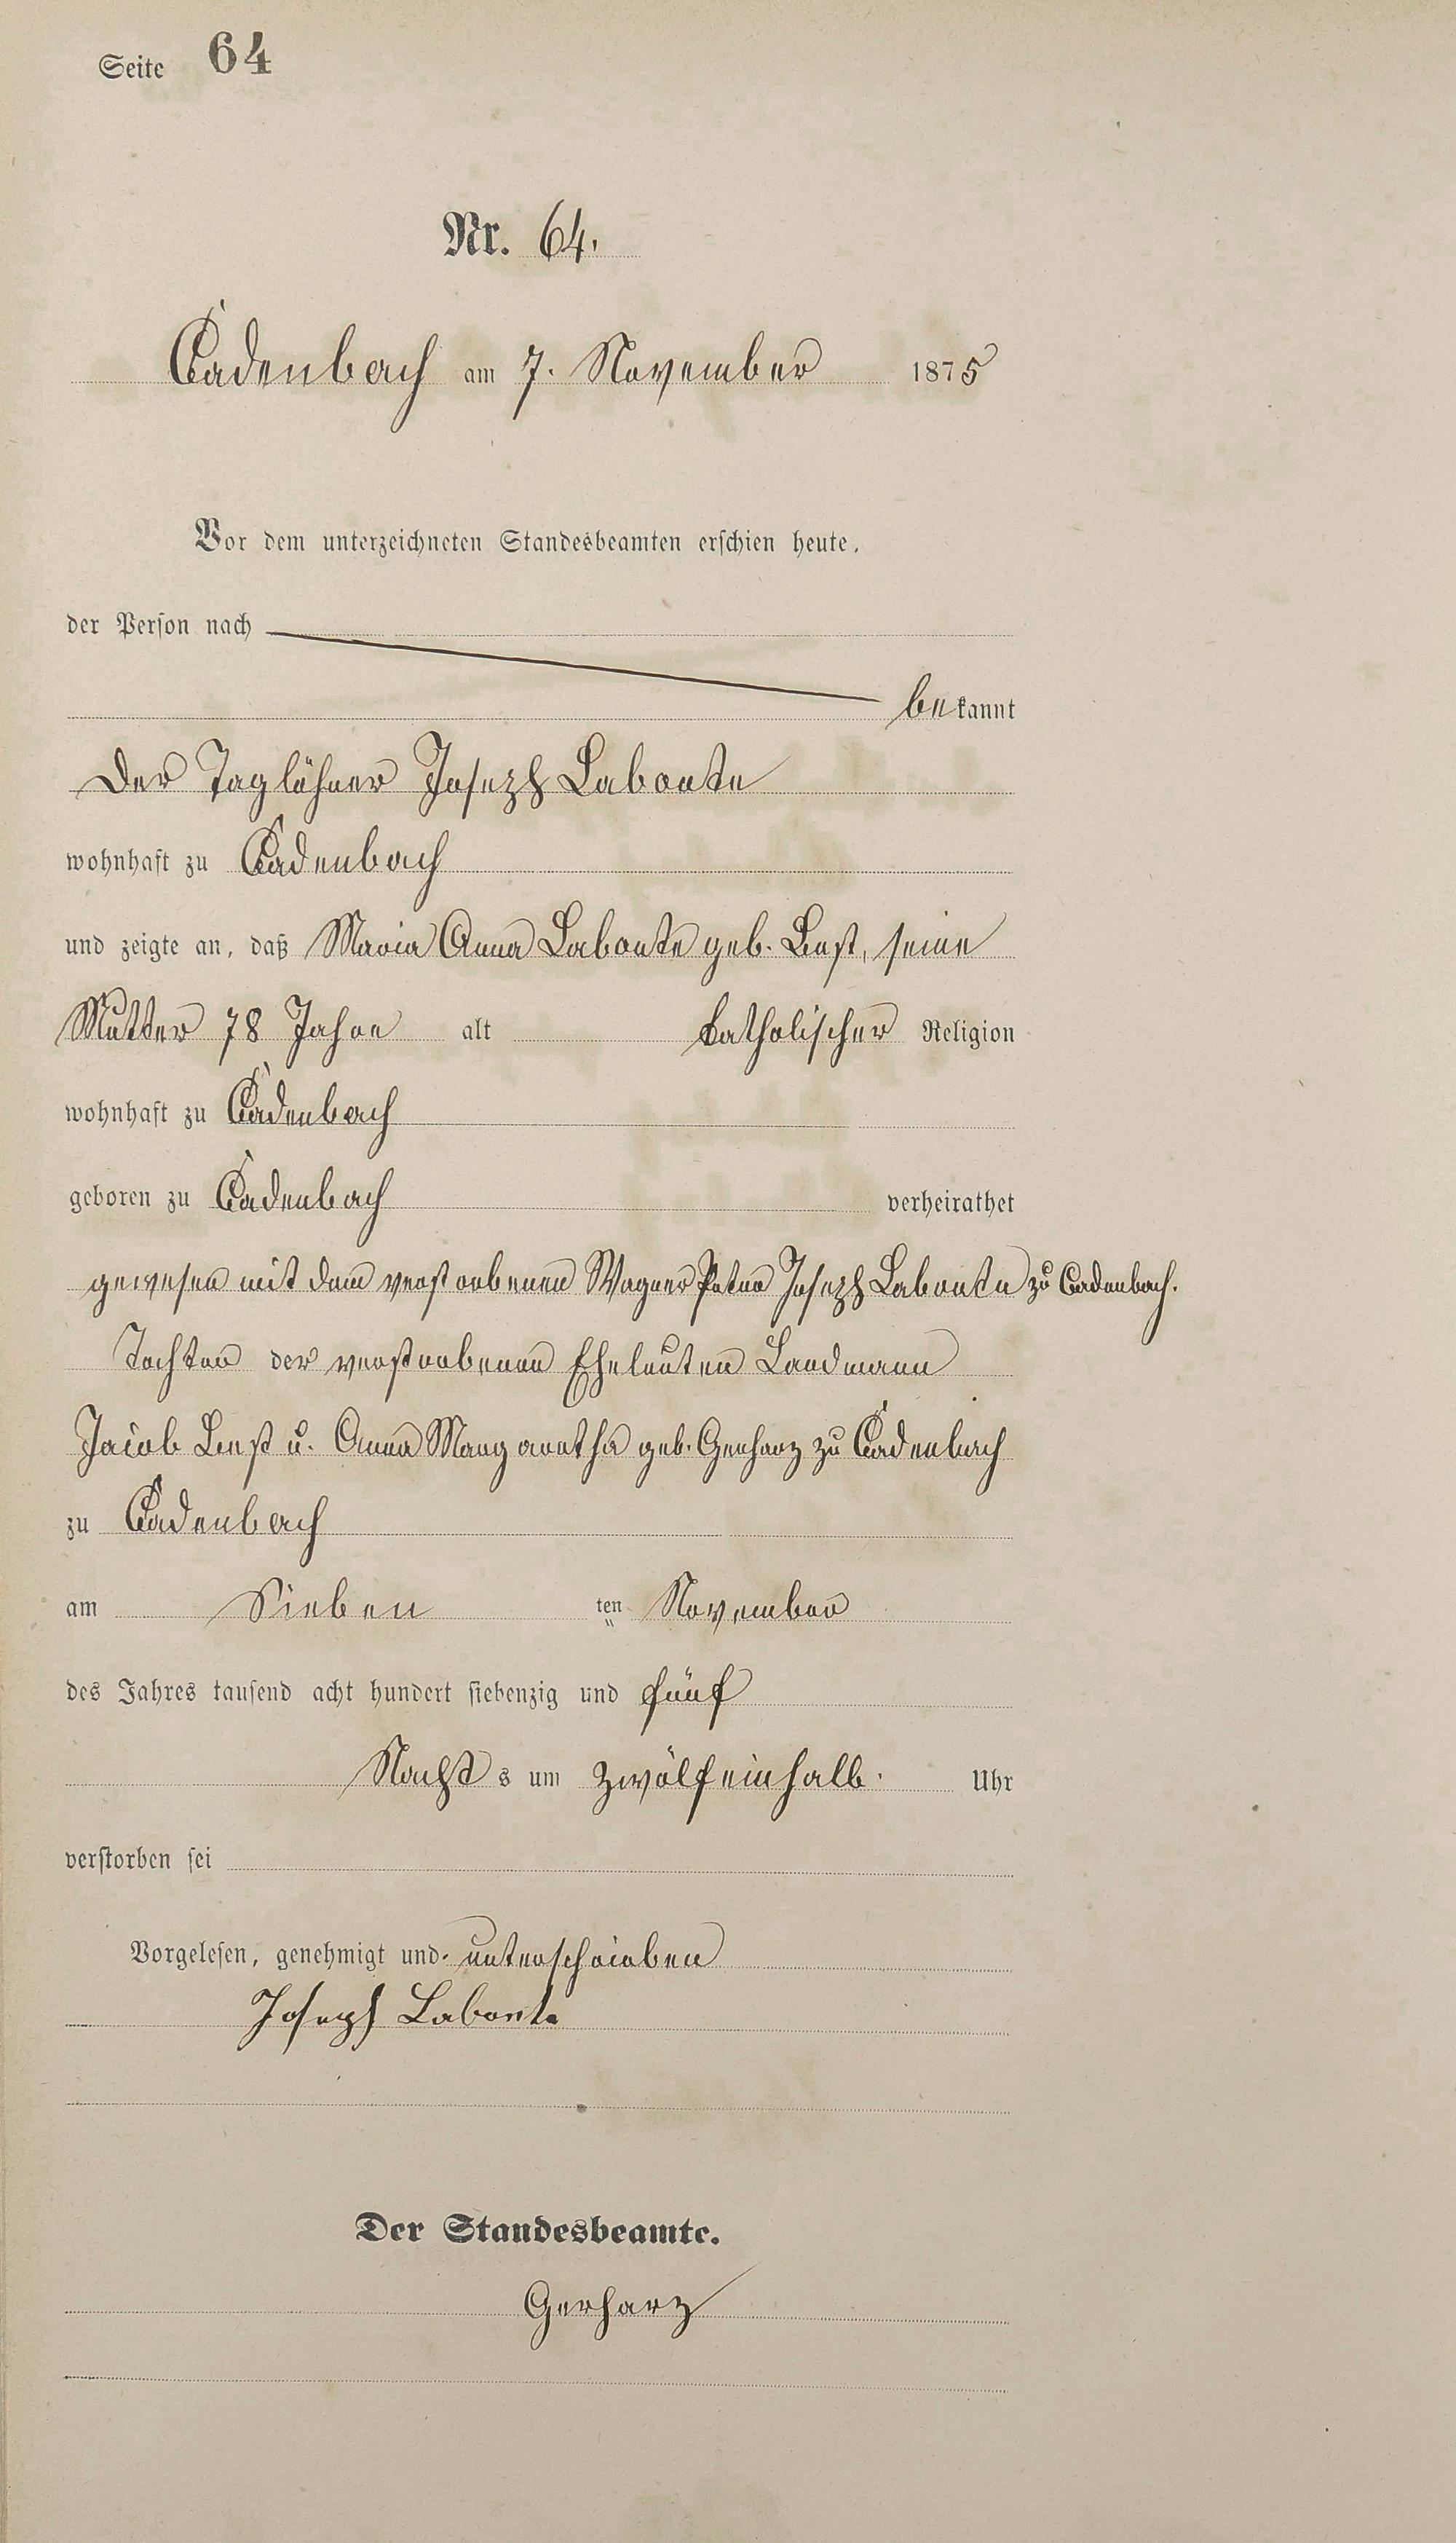 Seite 64
Nr. 64.
Cadenbach am 7. November 1875
Vor dem unterzeichneten Standesbeamten erschien heute,
der Person nach
bekannt
Der Taglöhner Joseph Labonte
wohnhaft zu Cadenbach
und zeigte an, daß Maria Anna Labonte geb. Best, seine
Mutter 78 Jahre alt katholischer Religion
wohnhaft zu Cadenbach
geboren zu Cadenbach verheirathet
gewesen mit dem verstorbenen Wagner Peter Joseph Labonte zu Cadenbach.
Tochter der verstorbenen Eheleuten Landmann
Jacob Best u. Anna Margaretha geb. Gerharz zu Cadenbach
zu Cadenbach
am Sieben ten November
des Jahres tausend acht hundert siebenzig und fünf
Nachts um zwölfeinhalb. Uhr
verstorben sei
Vorgelesen, genehmigt und unterschrieben
Joseph Labonte
Der Standesbeamte.
Gerharz